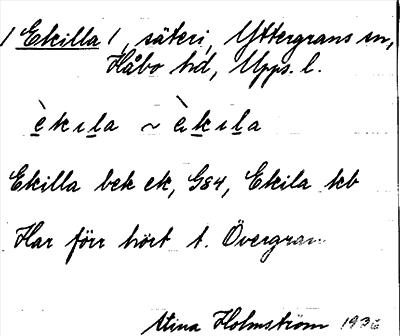 / Ekilla /, säteri, Yttergrans sn,
Håbo hd, Upps. l.
èkịla ~ ὲkịla
Ekilla bek ek, G84, Ekila kb
Har förr hört t. Övergran
Stina Holmström 1936